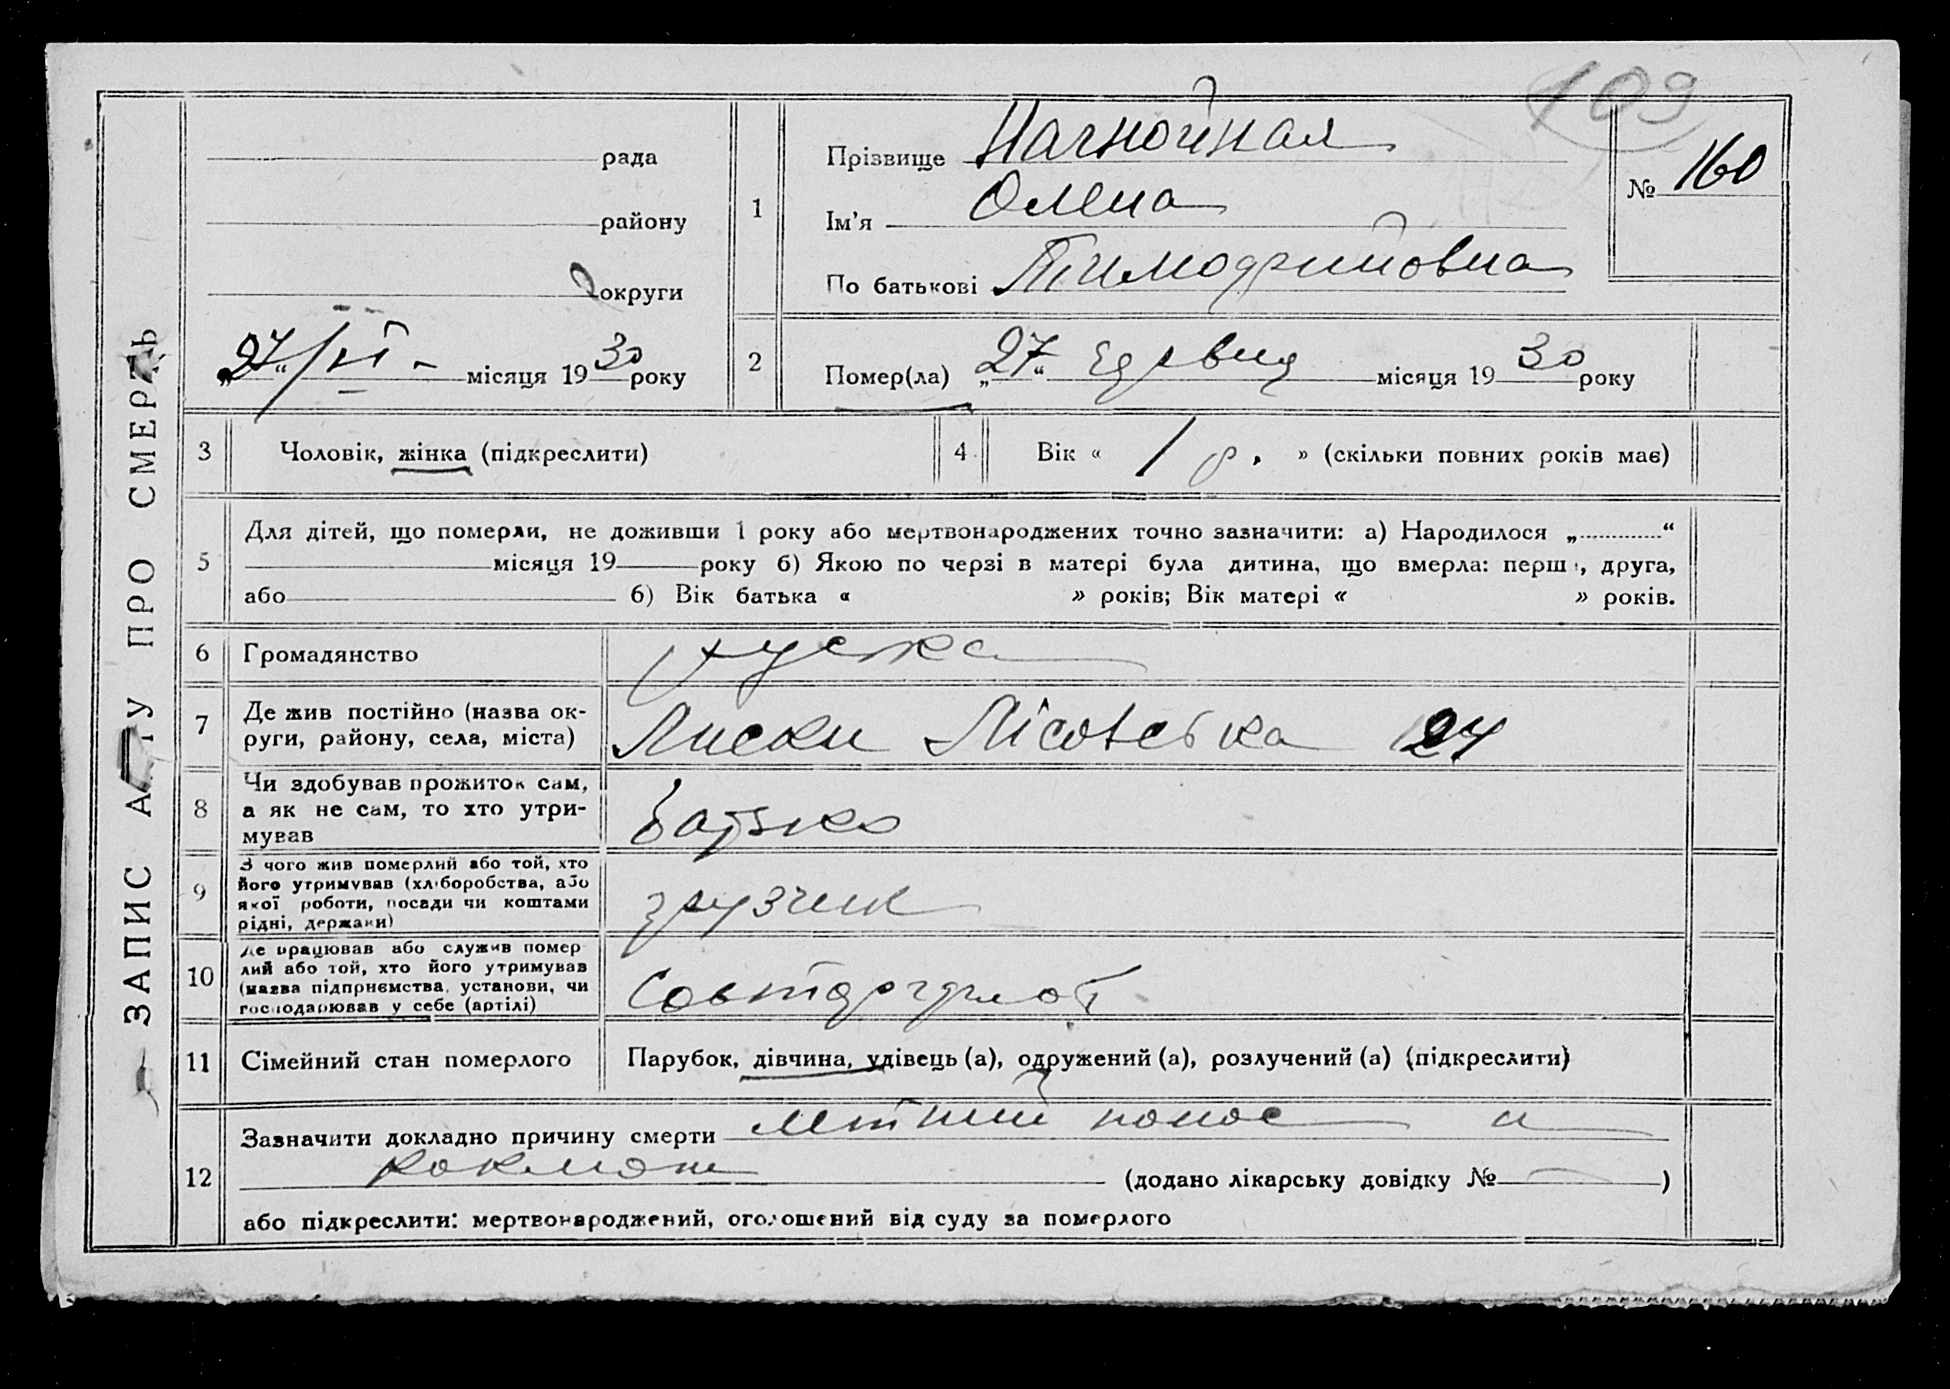 109
ЗАПИС АКТУ ПРО СМЕРТЬ
рада
району
округи
„27“ /VI - місяця 1930 року
1
Прізвище
Ім'я Олена
По батькові
№ 160
2
Помер(ла) „27“ місяця 1930 року
3
Чоловік, жінка (підкреслити)
4
Вік « 1 р. » (скільки повних років має)
5
Для дітей, що померли, не доживши 1 року або мертвонароджених точно зазначити: а) Народилося „ “
місяця 19 року б) Якою по черзі в матері була дитина, що вмерла: перша, друга,
або б) Вік батька « » років; Вік матері « » років.
6
Громадянство руська
7
Де жив постійно (назва ок-
руги, району, села, міста)
Лиски Лісовська 24
8
Чи здобував прожиток сам,
а як не сам, то хто утри-
мував
батько
9
З чого жив померлий або той, хто
його утримував (хліборобства, або
якої роботи, посади чи коштами
рідні, держави)
грузчик
10
Де працював або служив помер
лий або той, хто його утримував
(назва підприємства, установи, чи
господарював у себе (артілі)
Совторгфлот
11
Сімейний стан померлого
Парубок, дівчина, удівець (а), одружений (а), розлучений (а) (підкреслити)
12
Зазначити докладно причину смерти летний понос и
коклюш (додано лікарську довідку № )
або підкреслити: мертвонароджений, оголошений від суду за померлого